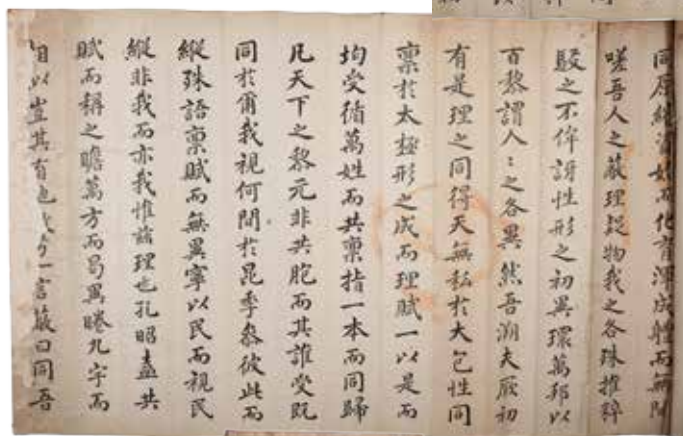 同原紛資始而化育渾成體而無間
嗟吾人之蔽理疑物我之各殊推粹
駁之不侔訝性形之初異環萬邦以
百黎謂人〻之各異然吾溯夫厥初
有是理之同得天無私於大包性同
稟於太極形之成而理賦一以是而
均受循萬姓而共稟指一本而同歸
凡天下之黎元非共胞而其誰受旣
同於爾我視何間於昆季叅彼此而
縱殊語稟賦而無異寧以民而視民
縱非我而亦我惟玆理也孔昭盍共
賦而稱之瞻萬方而曷異睠九字而
以豈其有他我今一言蔽曰同吾